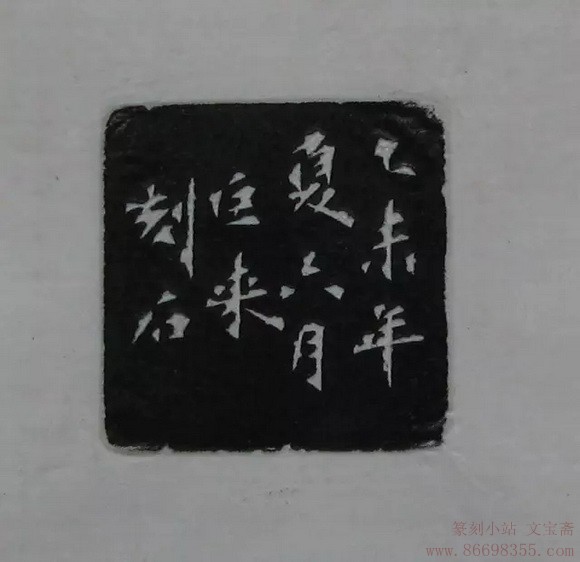 乙未年
夏六月
庄来
刻石
篆刻小站 文宝斋
www.86698355.com